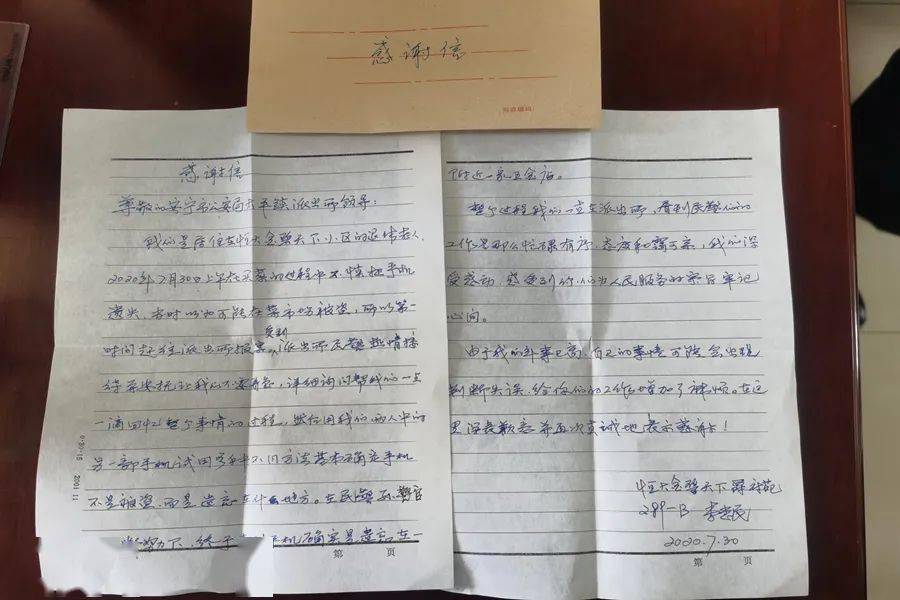 感谢信
感谢信
尊敬的安宁市公安局太平镇派出所领导：
我们是居住在恒大金碧天下小区的退休老人，
2020年7月30日上午在买菜的过程中不慎把手机
遗失，当时以为可能在菜市场被盗，所以第一
时间赶往派出所报案，受到派出所民警热情接
待并安抚让我们不要着急，详细询问帮我们一点
一滴回忆整个事情的过程，然后用我们两人中的
另一部手机试用多种不同方法基本确定手机
不是被盗，而是遗忘在什么地方。在民警 警官
努力下，终于 手机确实是遗忘在一
附近一家五金店。
整个过程我们一直在派出所，看到民警们的
工作是那么忙碌有序，态度和蔼可亲，我们深
受感动，感受到你们为人民服务的宗旨牢记
心间。
由于我们年事已高，自己的事情可能会出现
判断失误，给你们的工作增加了麻烦。在这
里深表歉意并再次真诚地表示感谢！
恒大金碧天下
289-13 李 民
2020.7.30
第 页
第 页
0-30-15 2001.11